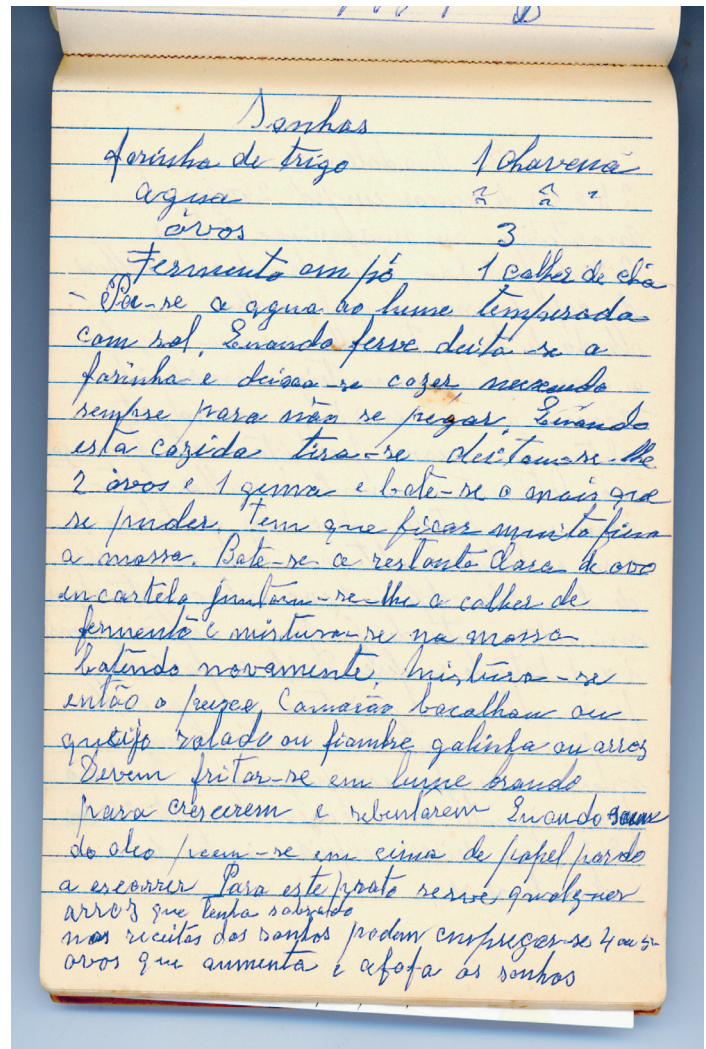 Sonhos
farinha de trigo 1 chavena
agua " " "
óvos 3
Fermento em pó 1 colher de chá
- Põe-se a agua ao lume temperada
com sal. Quando ferve deita-se a
farinha e deixa-se cozer mexendo
sempre para não se pegar. Quando
está cozida tira-se deitam-se-lhe
2 ovos e 1 gema e bate-se o mais que
se puder. Tem que ficar muito fina
a massa. Bate-se a restante clara de ovo
em castelo juntam-se-lhe a colher de
fermento e mistura-se na massa
batendo novamente. Mistura-se
então o peixe, Camarão bacalhau ou
queijo ralado ou fiambre galinha ou arroz
Devem fritar-se em lume brando
para crescerem e rebentarem Quando saem
do oleo poem-se em cima de papel pardo
a escorrer Para este prato serve qualquer
arroz que tenha sobrado
nas receitas dos sonhos podem empregar-se 4 ou 5
ovos que aumenta e afofa os sonhos